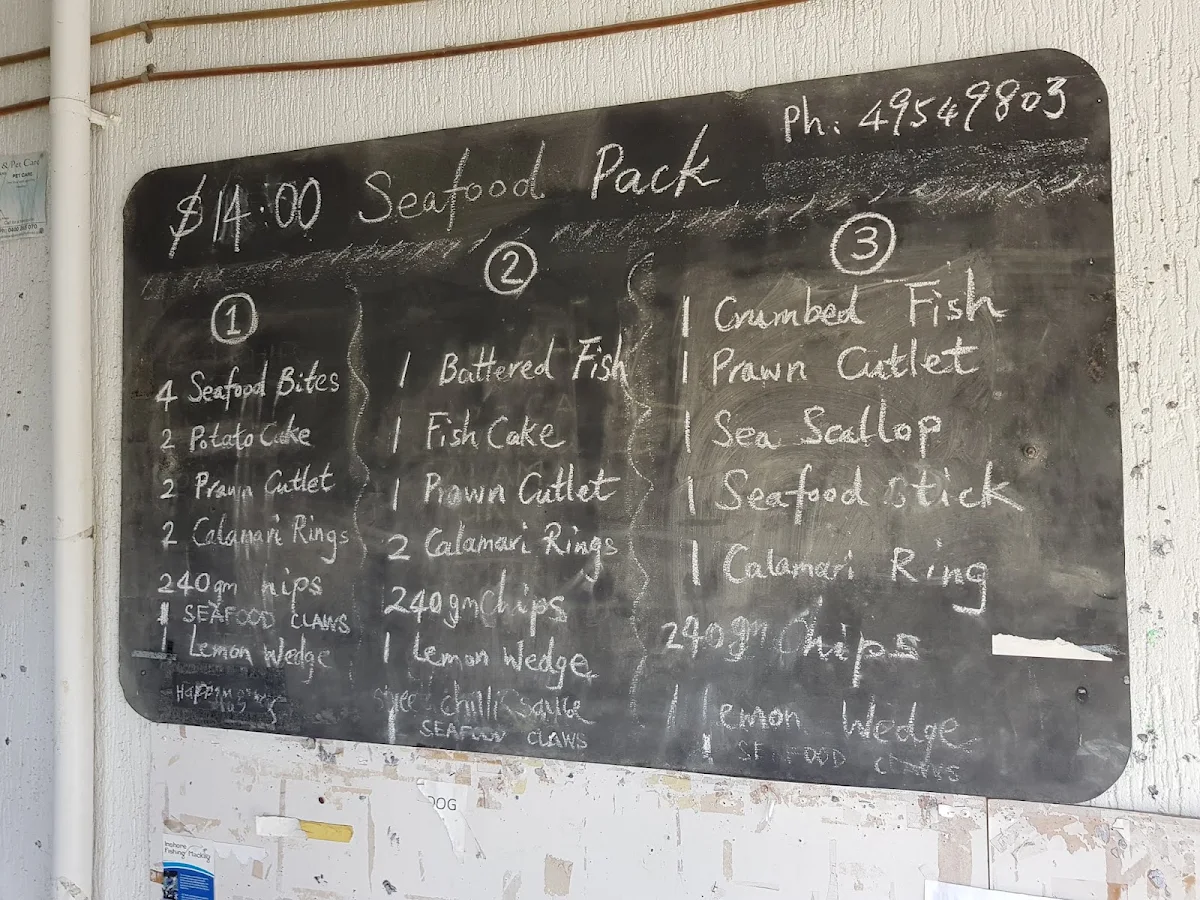 Ph: 49549803
$14.00 Seafood Pack
1
4 Seafood Bites
2 Potato Cake
2 Prawn Cutlet
2 Calamari Rings
240gm hips
1 SEAFOOD CLAWS
1 Lemon Wedge
2
1 Battered Fish
1 Fish Cake
1 Prawn Cutlet
2 Calamari Rings
240gm Chips
1 Lemon Wedge
chilli sauce
1 SEAFOOD CLAWS
3
1 Crumbed Fish
1 Prawn Cutlet
1 Sea Scallop
1 Seafood Stick
1 Calamari Ring
240gm Chips
1 Lemon Wedge
1 SEAFOOD CLAWS
& Pet Care
PET CARE
DOG
Inshore
Fishing Mackay